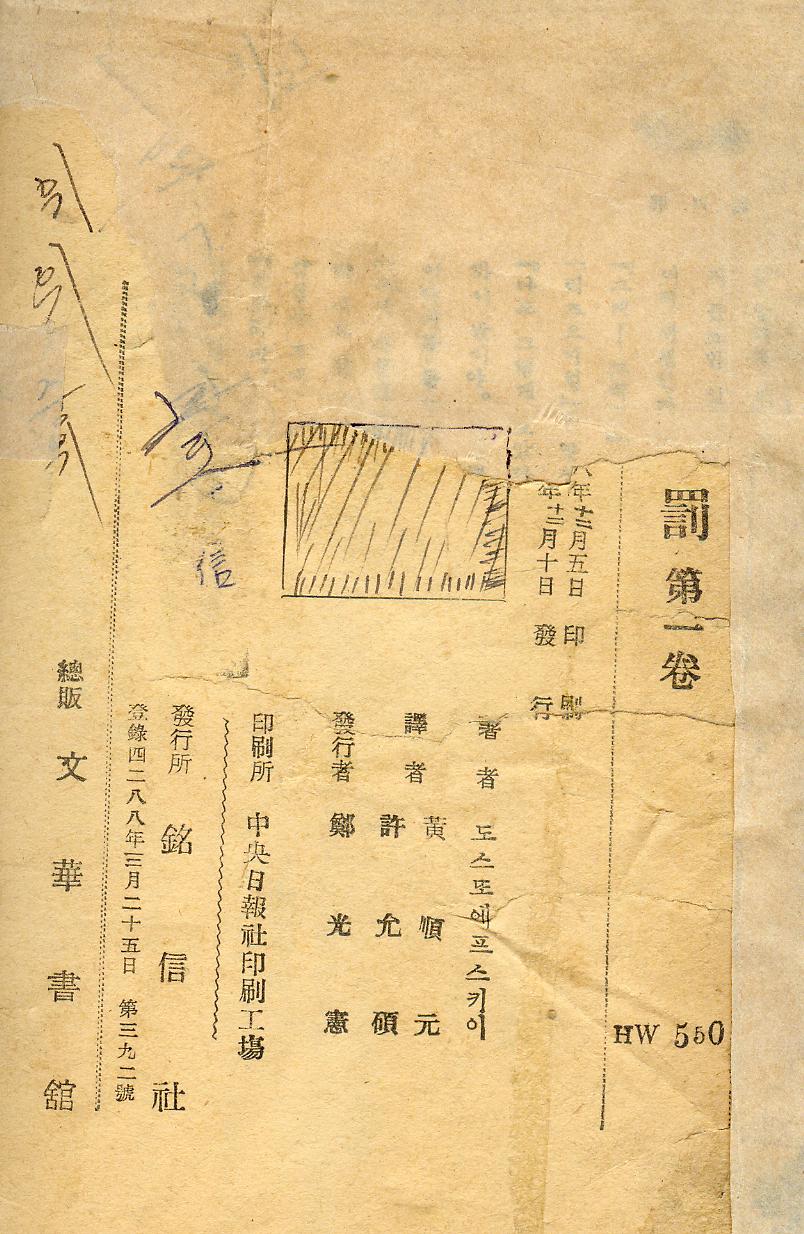 罰 第一卷
HW 550
八年十二月五日 印刷
年十二月十日 發行
著者 도스또예프스키이
譯者 黃順元
許允碩
發行者 鄭光憲
印刷所 中央日報社印刷工場
發行所 銘信社
登錄四二八八年三月二十五日 第三九二號
總販 文華書舘
信